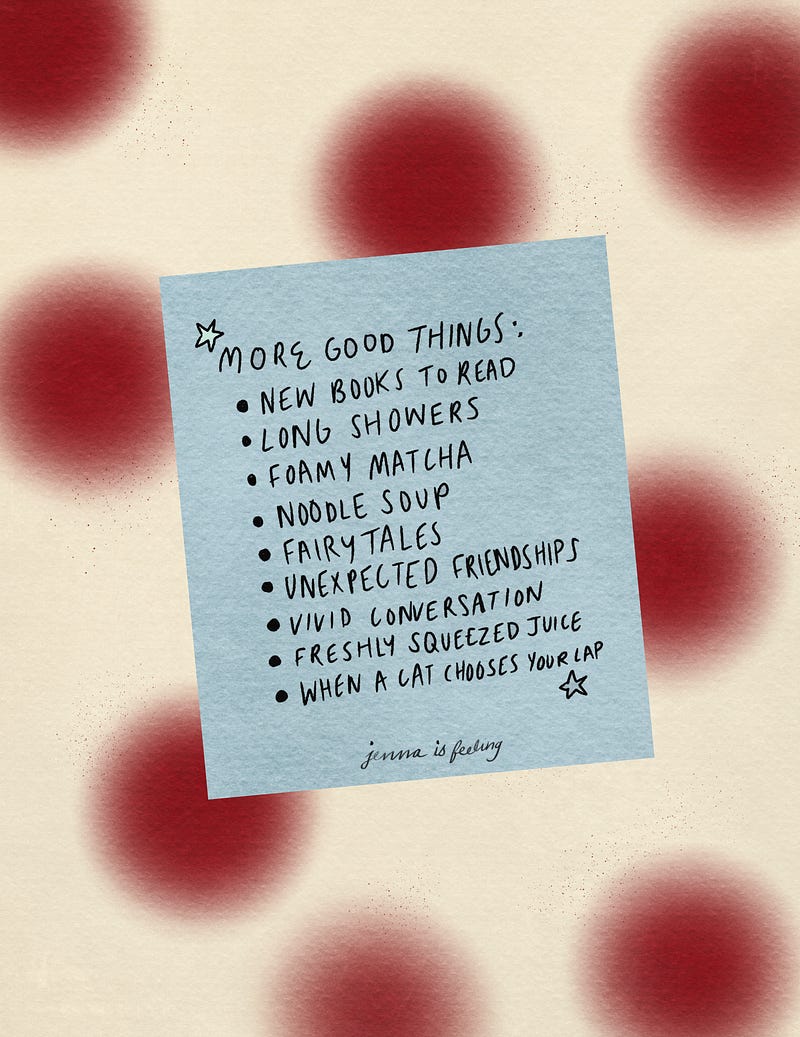 MORE GOOD THINGS:
• NEW BOOKS TO READ
• LONG SHOWERS
• FOAMY MATCHA
• NOODLE SOUP
• FAIRYTALES
• UNEXPECTED FRIENDSHIPS
• VIVID CONVERSATION
• FRESHLY SQUEEZED JUICE
• WHEN A CAT CHOOSES YOUR LAP
jenna is feeling